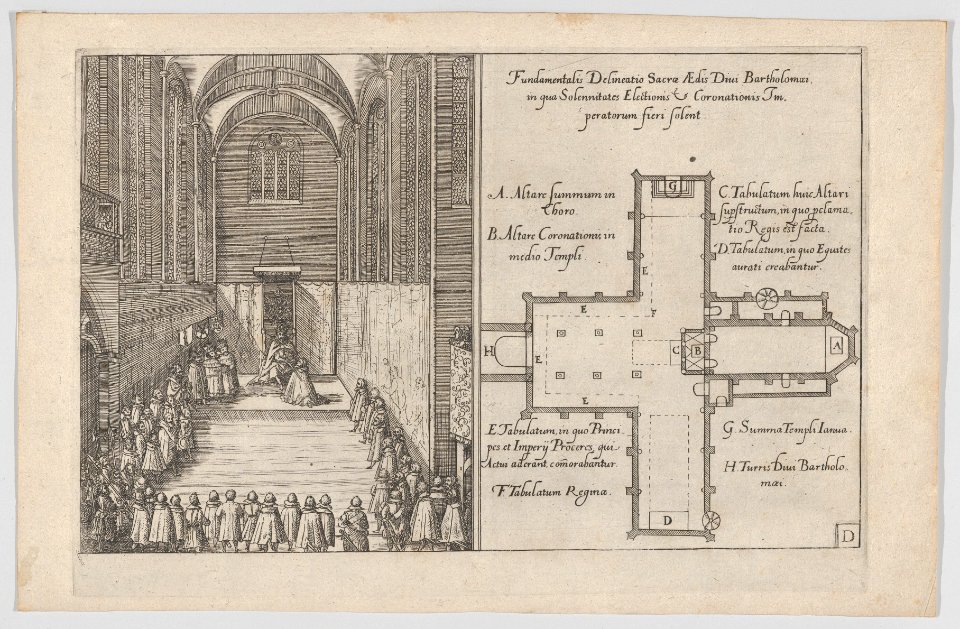 Fundamentalis Delineatio Sacræ Ædis Diui Bartholomæi,
in qua Solennitates Electionis & Coronationis Im,
peratorum fieri solent
G
A. Altare summum in
Choro.
B. Altare Coronationis in
medio Templi.
C. Tabulatum huic Altari
supstructum, in quo pclama,
tio Regis est facta.
D. Tabulatum, in quo Equites
aurati creabantur.
E
E
F
H
E
C
B
A
E
E. Tabulatum, in quo Princi,
pes et Imperij Proceres, qui
Actui aderant, comorabantur.
F. Tabulatum Reginæ.
G. Summa Templi Ianua.
H. Turris Diui Bartholo,
mæi.
D
D